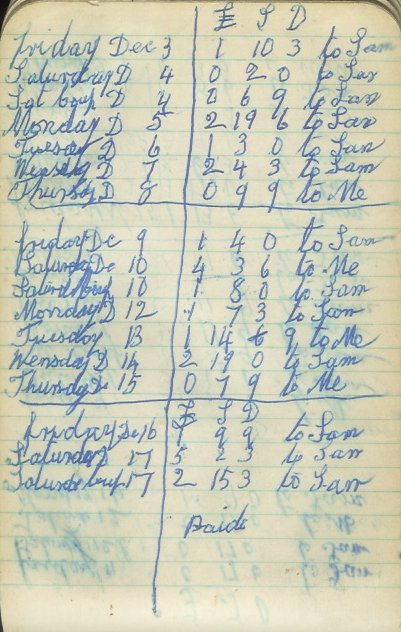 £ S D
Friday Dec 3 1 10 3 to Sam
Saturday D 4 0 2 0 to Sam
Sat D 4 0 6 9 to Sam
Monday D 5 2 19 6 to Sam
Tuesday D 6 1 3 0 to Sam
Wensday D 7 2 4 3 to Sam
Thursdy D 8 0 9 9 to Me
Friday De 9 1 4 0 to Sam
Saturday De 10 4 3 6 to Me
10 1 8 0 to Sam
Monday D 12 1 7 3 to Sam
Tuesday 13 1 14 9 to Me
Wensday D 14 2 19 0 to Sam
Thursdy De 15 0 7 9 to Me
£ S D
Friday De 16 1 9 9 to Sam
Saturday D 17 5 2 3 to Sam
17 2 15 3 to Sam
Paide